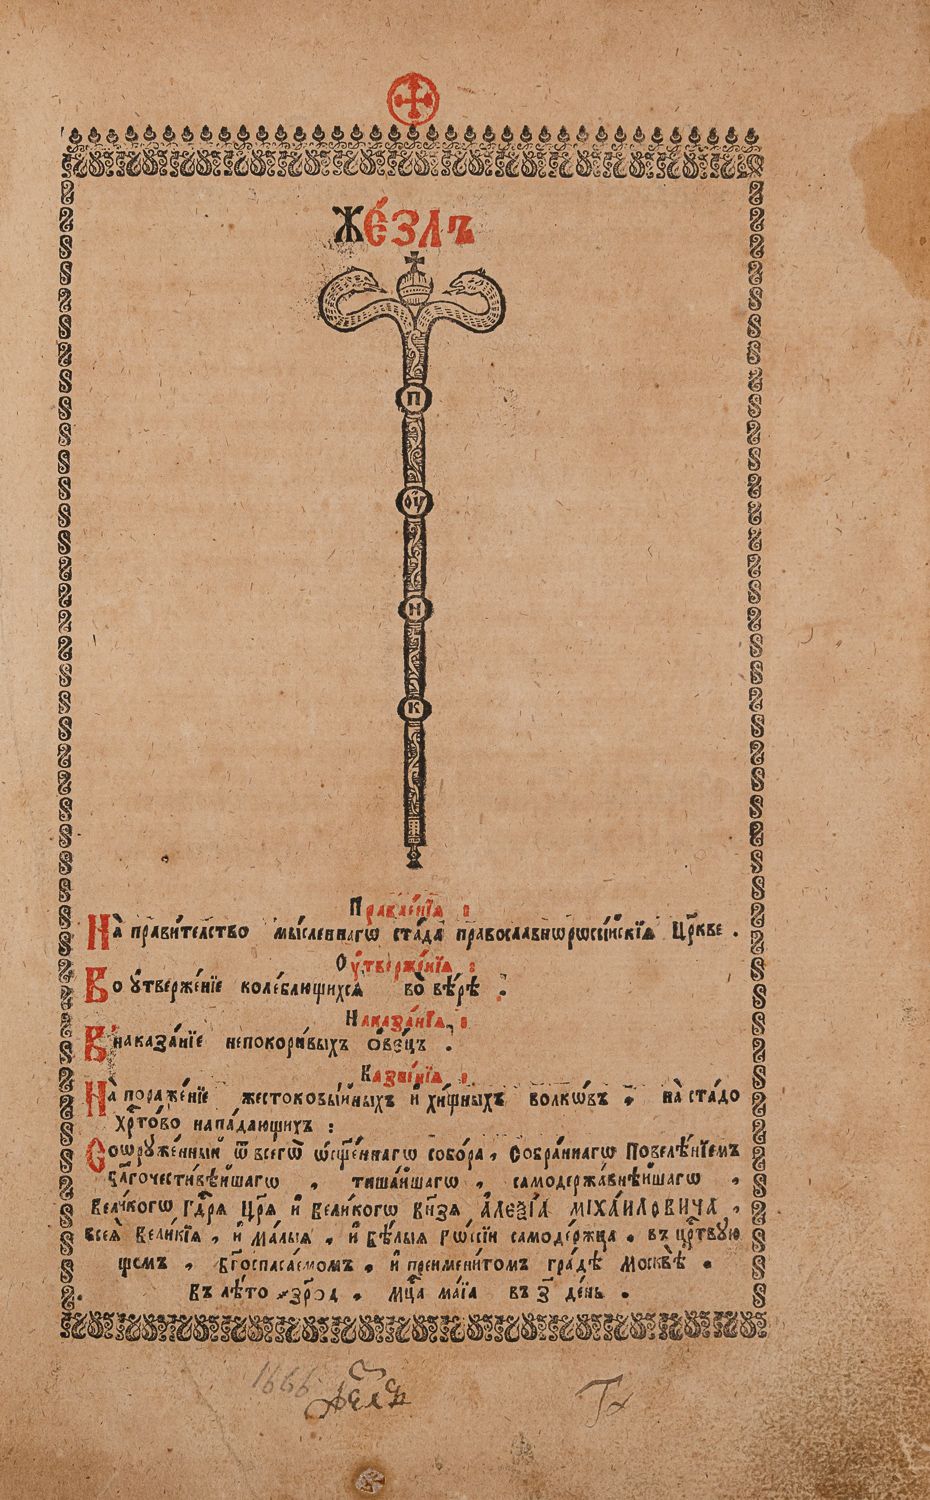 Же́злъ
П
Оу
Н
К
Правле́нїѧ :
На̀ прави́телство мы́сленнагѡ ста́да правосла́внорѡссі́йскїѧ Цр҃кве .
Оутверже́нїѧ :
Во ᲂу҆тверже́нїе коле́блющихсѧ во вѣ́рѣ .
Наказа́нїѧ :
В наказа́нїе непокори́выхъ ѻ҆ве́цъ .
Казне́нїѧ :
На̀ пораже́нїе жестоковы́йныхъ и҆ хи́щныхъ волкѡ́въ , на ста́до
Хр҃то́во напа́дающихъ :
Соѡруже́нный ѿ всегѡ̀ ѡ҆сщ҃е́ннагѡ собо́ра , Собра́ннагѡ Повелѣ́нїемъ
бл҃гочести́вѣйшагѡ , тиша́йшагѡ , самодержа́внѣйшагѡ ,
вели́когѡ гдⷭ҇рѧ Цр҃ѧ и҆ вели́когѡ кн҃зѧ Алеѯі́а Міха́иловича ,
всеѧ̀ вели́кїѧ , и҆ ма́лыѧ , и҆ бѣ́лыѧ рѡссі́и самоде́ржца . въ црⷭ҇твую
щемъ , бг҃оспаса́емомъ , и҆ преимени́томъ гра́дѣ Москвѣ̀ .
Въ лѣ́то ҂зр҃од , мцⷭ҇а маі́а въ з҃ де́нь .
1666